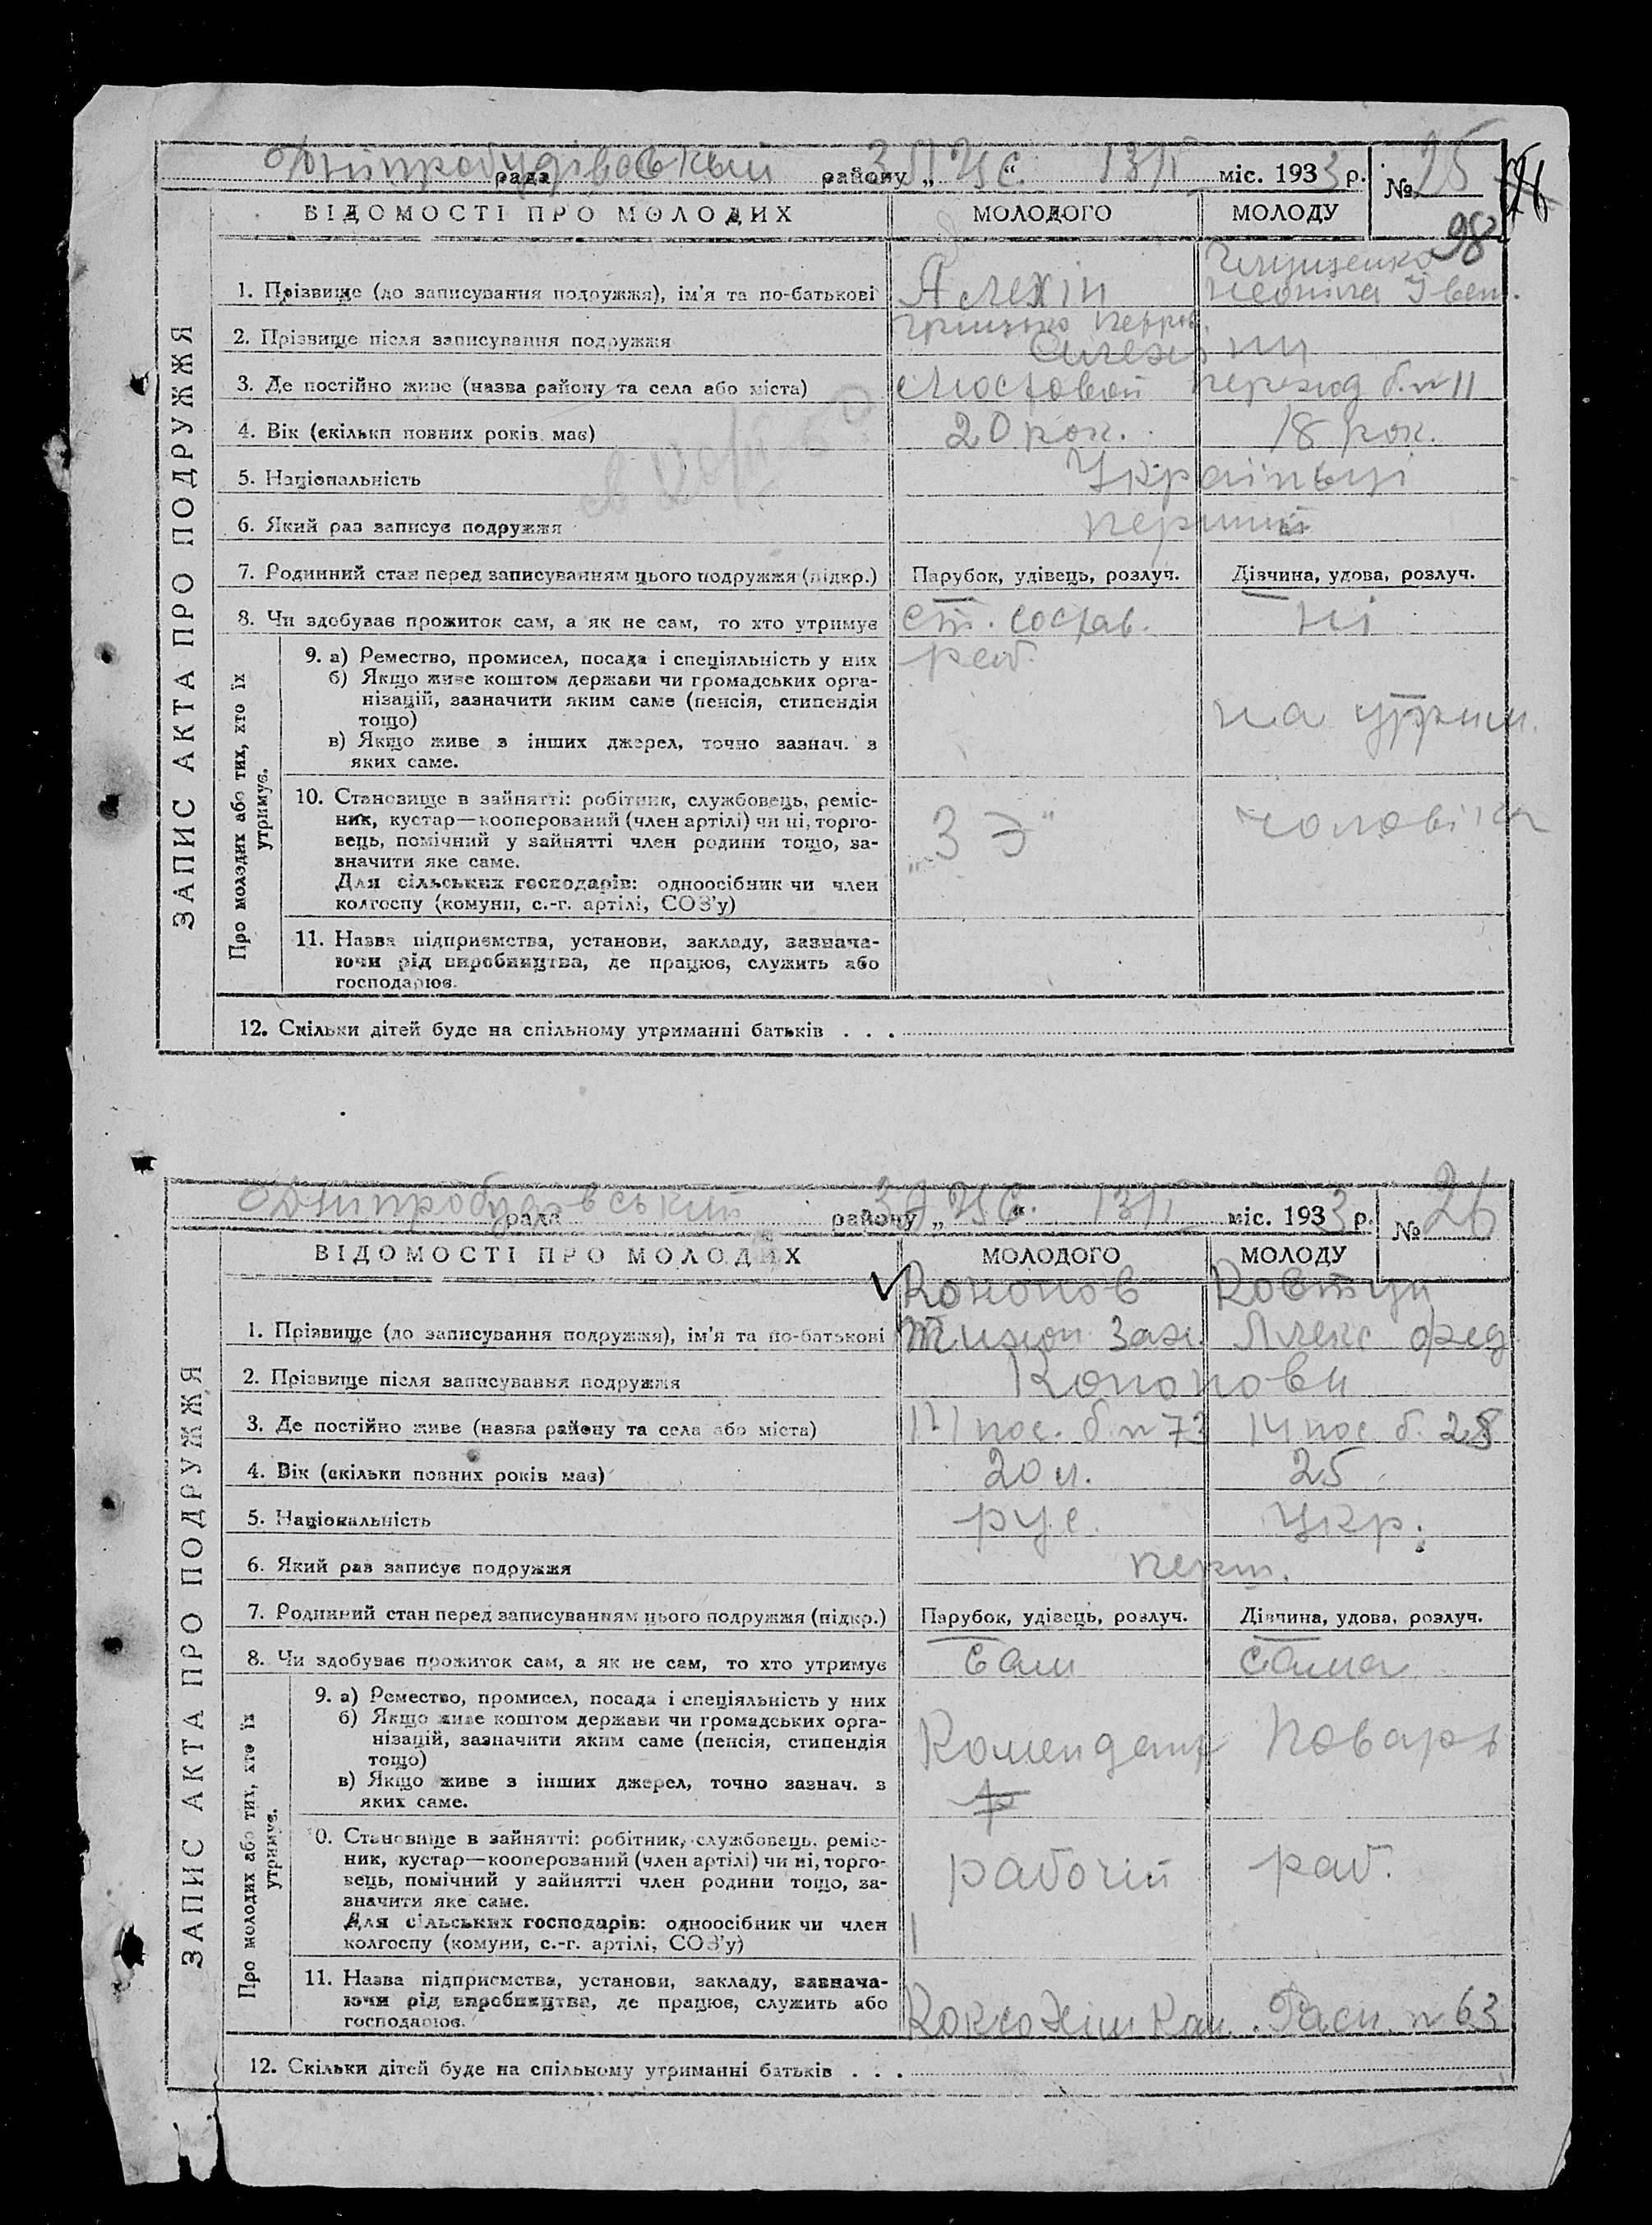 Дніпробудівський рада району „ЗАГС“ 13/II міс. 1933 р. № 25
98
ВІДОМОСТІ ПРО МОЛОДИХ МОЛОДОГО МОЛОДУ
ЗАПИС АКТА ПРО ПОДРУЖЖЯ
1. Прізвище (до записування подружжя), ім'я та по-батькові Алехін
2. Прізвище після записування подружжя
3. Де постійно живе (назва району та села або міста) Мостовой переход б. № 11
4. Вік (скільки повних років має) 20 рок. 18 рок.
5. Національність Україньці
6. Який раз записує подружжя перший
7. Родинний стан перед записуванням цього подружжя (підкр.) Парубок, удівець, розлуч. Дівчина, удова, розлуч.
8. Чи здобуває прожиток сам, а як не сам, то хто утримує ст. состав. ні
Про молодих або тих, хто їх утримує.
9. а) Ремество, промисел, посада і спеціяльність у них раб.
б) Якщо живе коштом держави чи громадських орга-
нізацій, зазначити яким саме (пенсія, стипендія
тощо) на утрим.
в) Якщо живе з інших джерел, точно зазнач. з
яких саме.
10. Становище в зайнятті: робітник, службовець, реміс-
ник, кустар—кооперований (член артілі) чи ні, торго- „З Э“ чоловіка
вець, помічний у зайнятті член родини тощо, за-
значити яке саме.
Для сільських господарів: одноосібник чи член
колгоспу (комуни, с.-г. артілі, СОЗ'у)
11. Назва підприємства, установи, закладу, зазнача-
ючи рід виробництва, де працює, служить або
господарює.
12. Скільки дітей буде на спільному утриманні батьків . . .
Дніпробудовський рада району „ЗАГС“ 13/II міс. 1933 р. № 26
ВІДОМОСТІ ПРО МОЛОДИХ МОЛОДОГО МОЛОДУ
ЗАПИС АКТА ПРО ПОДРУЖЖЯ
Кононов Ковтун
1. Прізвище (до записування подружжя), ім'я та по-батькові Тихон Зах. Алекс Фед
2. Прізвище після записування подружжя Кононови
3. Де постійно живе (назва району та села або міста) пос. б. № 73 14 пос б. 28
4. Вік (скільки повних років має) 20 л. 25
5. Національність рус. Укр.
6. Який раз записує подружжя перш.
7. Родинний стан перед записуванням цього подружжя (підкр.) Парубок, удівець, розлуч. Дівчина, удова, розлуч.
8. Чи здобуває прожиток сам, а як не сам, то хто утримує Сам Сама
Про молодих або тих, хто їх утримує.
9. а) Ремество, промисел, посада і спеціяльність у них
б) Якщо живе коштом держави чи громадських орга-
нізацій, зазначити яким саме (пенсія, стипендія Комендант Поваръ
тощо)
в) Якщо живе з інших джерел, точно зазнач. з
яких саме.
0. Становище в зайнятті: робітник, службовець, реміс-
ник, кустар—кооперований (член артілі) чи ні, торго- рабочій раб.
вець, помічний у зайнятті член родини тощо, за-
значити яке саме.
Для сільських господарів: одноосібник чи член
колгоспу (комуни, с.-г. артілі, СОЗ'у)
11. Назва підприємства, установи, закладу, зазнача-
ючи рід виробництва, де працює, служить або
господарює. Коксохім № 63
12. Скільки дітей буде на спільному утриманні батьків . . .